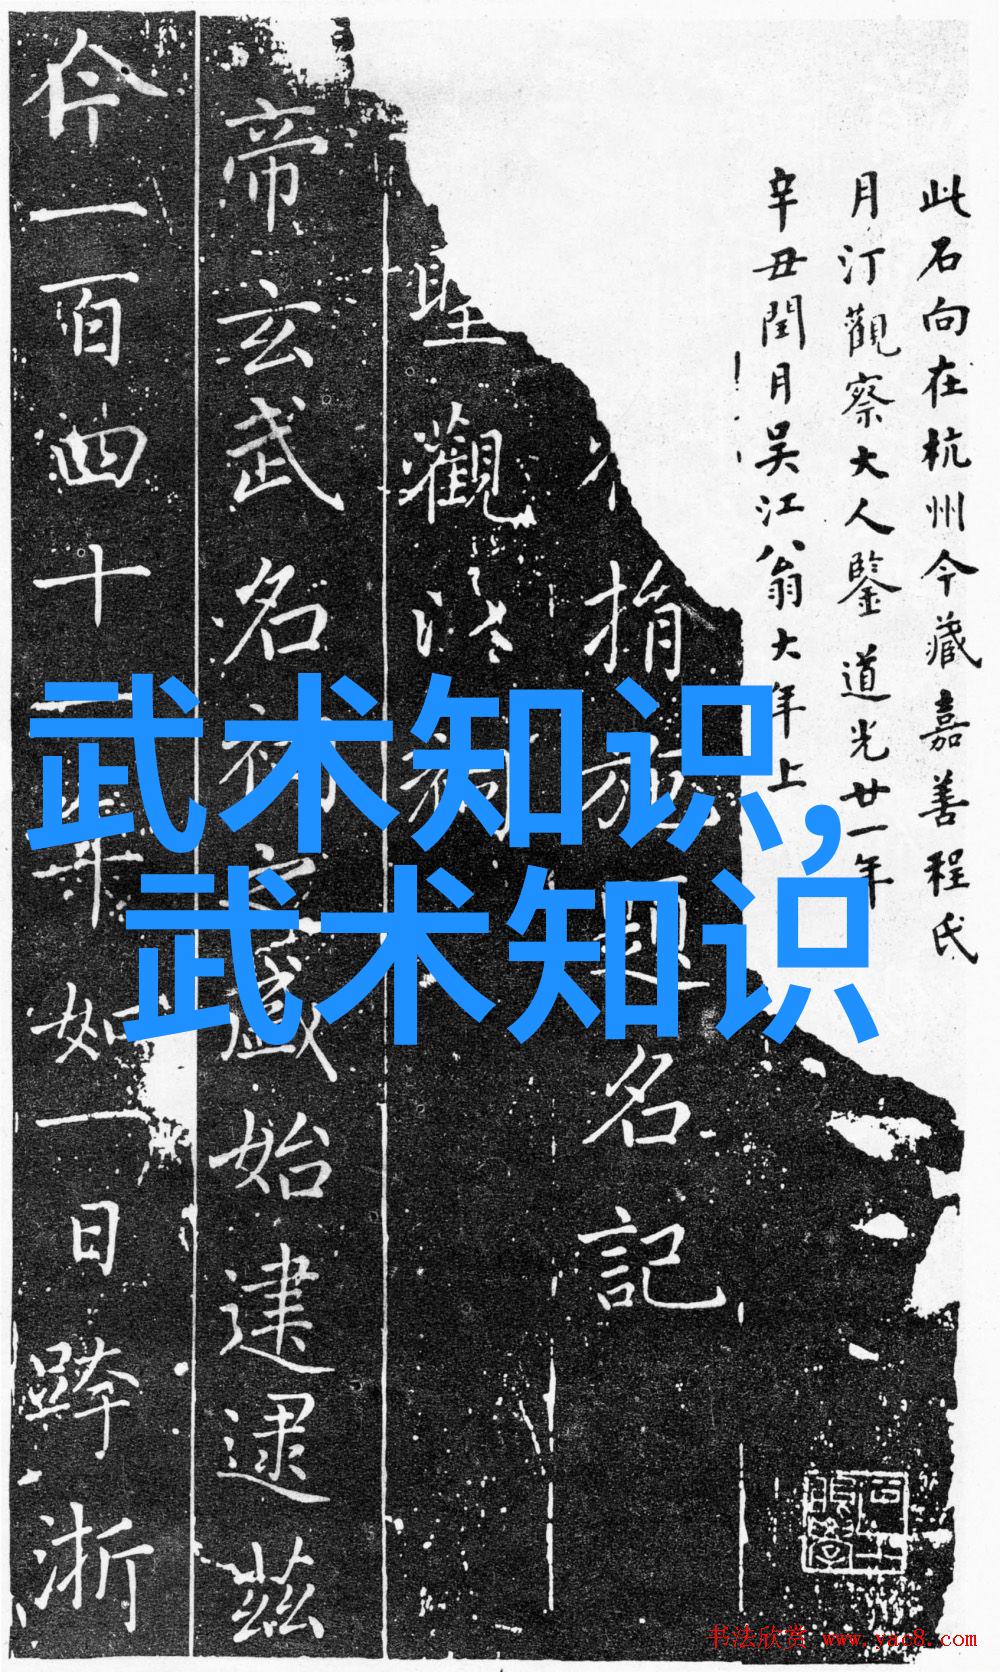 此石向在杭州今藏嘉善程氏
月汀觀察大人鑒道光廿一年
辛丑閏月吴江翁大年上
捐施題名記
聖觀
帝玄武名初盛始建逮茲
今一百四十年如一日跨浙
武术知识,
武术知识
书法欣赏 www.yac8.com